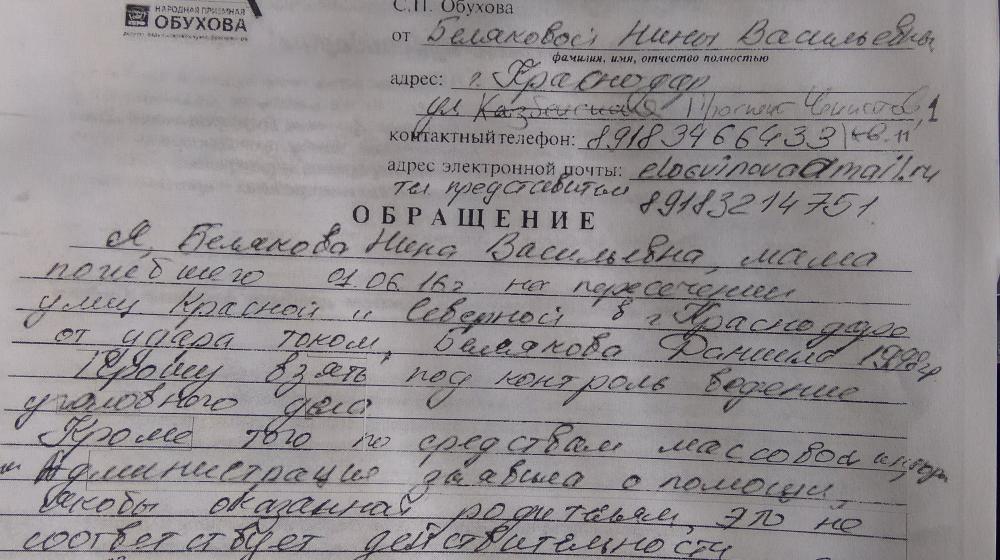 НАРОДНАЯ ПРИЕМНАЯ
ОБУХОВА
С.П. Обухова
от Беляковой Нины Васильевны
фамилия, имя, отчество полностью
адрес: г. Краснодар
ул Казбекская Проспект Чекистов, 1
контактный телефон: 89183466433 кв. 11
адрес электронной почты: elogvinova@mail.ru
89183214751
ОБРАЩЕНИЕ
Я, Белякова Нина Васильевна, мама
погибшего 01.06.16г на пересечении
улиц Красной и Северной в г. Краснодаре
от удара током, Белякова Даниила
Прошу взять под контроль ведение
уголовного дела
Кроме того по средствам массовой
Администрация заявила о помощи,
якобы оказанной родителям, это не
соответствует действительности